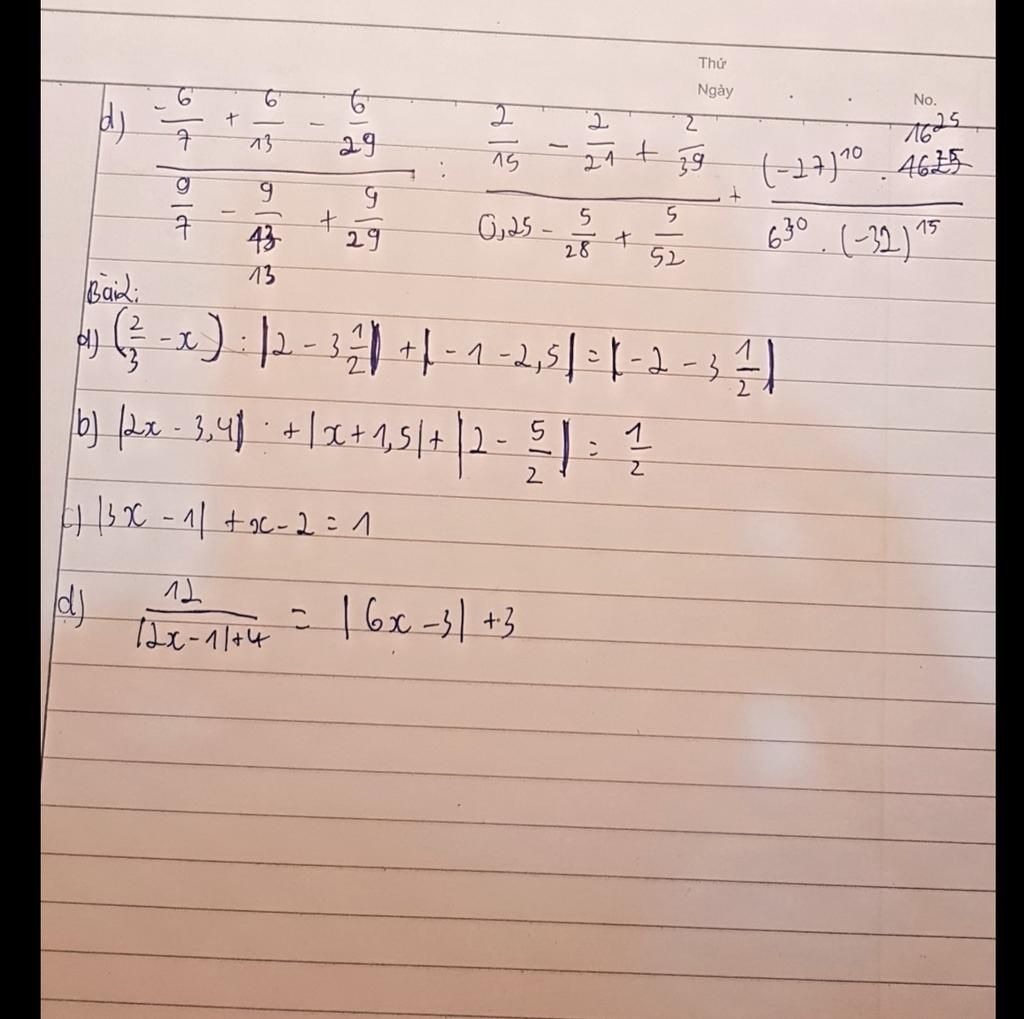 Thứ
Ngày
No.
d) \frac{-\frac{6}{7} + \frac{6}{13} - \frac{6}{29}}{\frac{9}{7} - \frac{9}{13} + \frac{9}{29}} : \frac{\frac{2}{15} - \frac{2}{21} + \frac{2}{39}}{0,25 - \frac{5}{28} + \frac{5}{52}} + \frac{(-27)^{10} . 16^{25}}{6^{30} . (-32)^{15}}
Bài 2:
a) (\frac{2}{3} - x) : |2 - 3\frac{1}{2}| + |-1 - 2,5| = |-2 - 3\frac{1}{2}|
b) |2x - 3,4| + |x + 1,5| + |2 - \frac{5}{2}| = \frac{1}{2}
c) |3x - 1| + x - 2 = 1
d) \frac{12}{|2x - 1| + 4} = |6x - 3| + 3